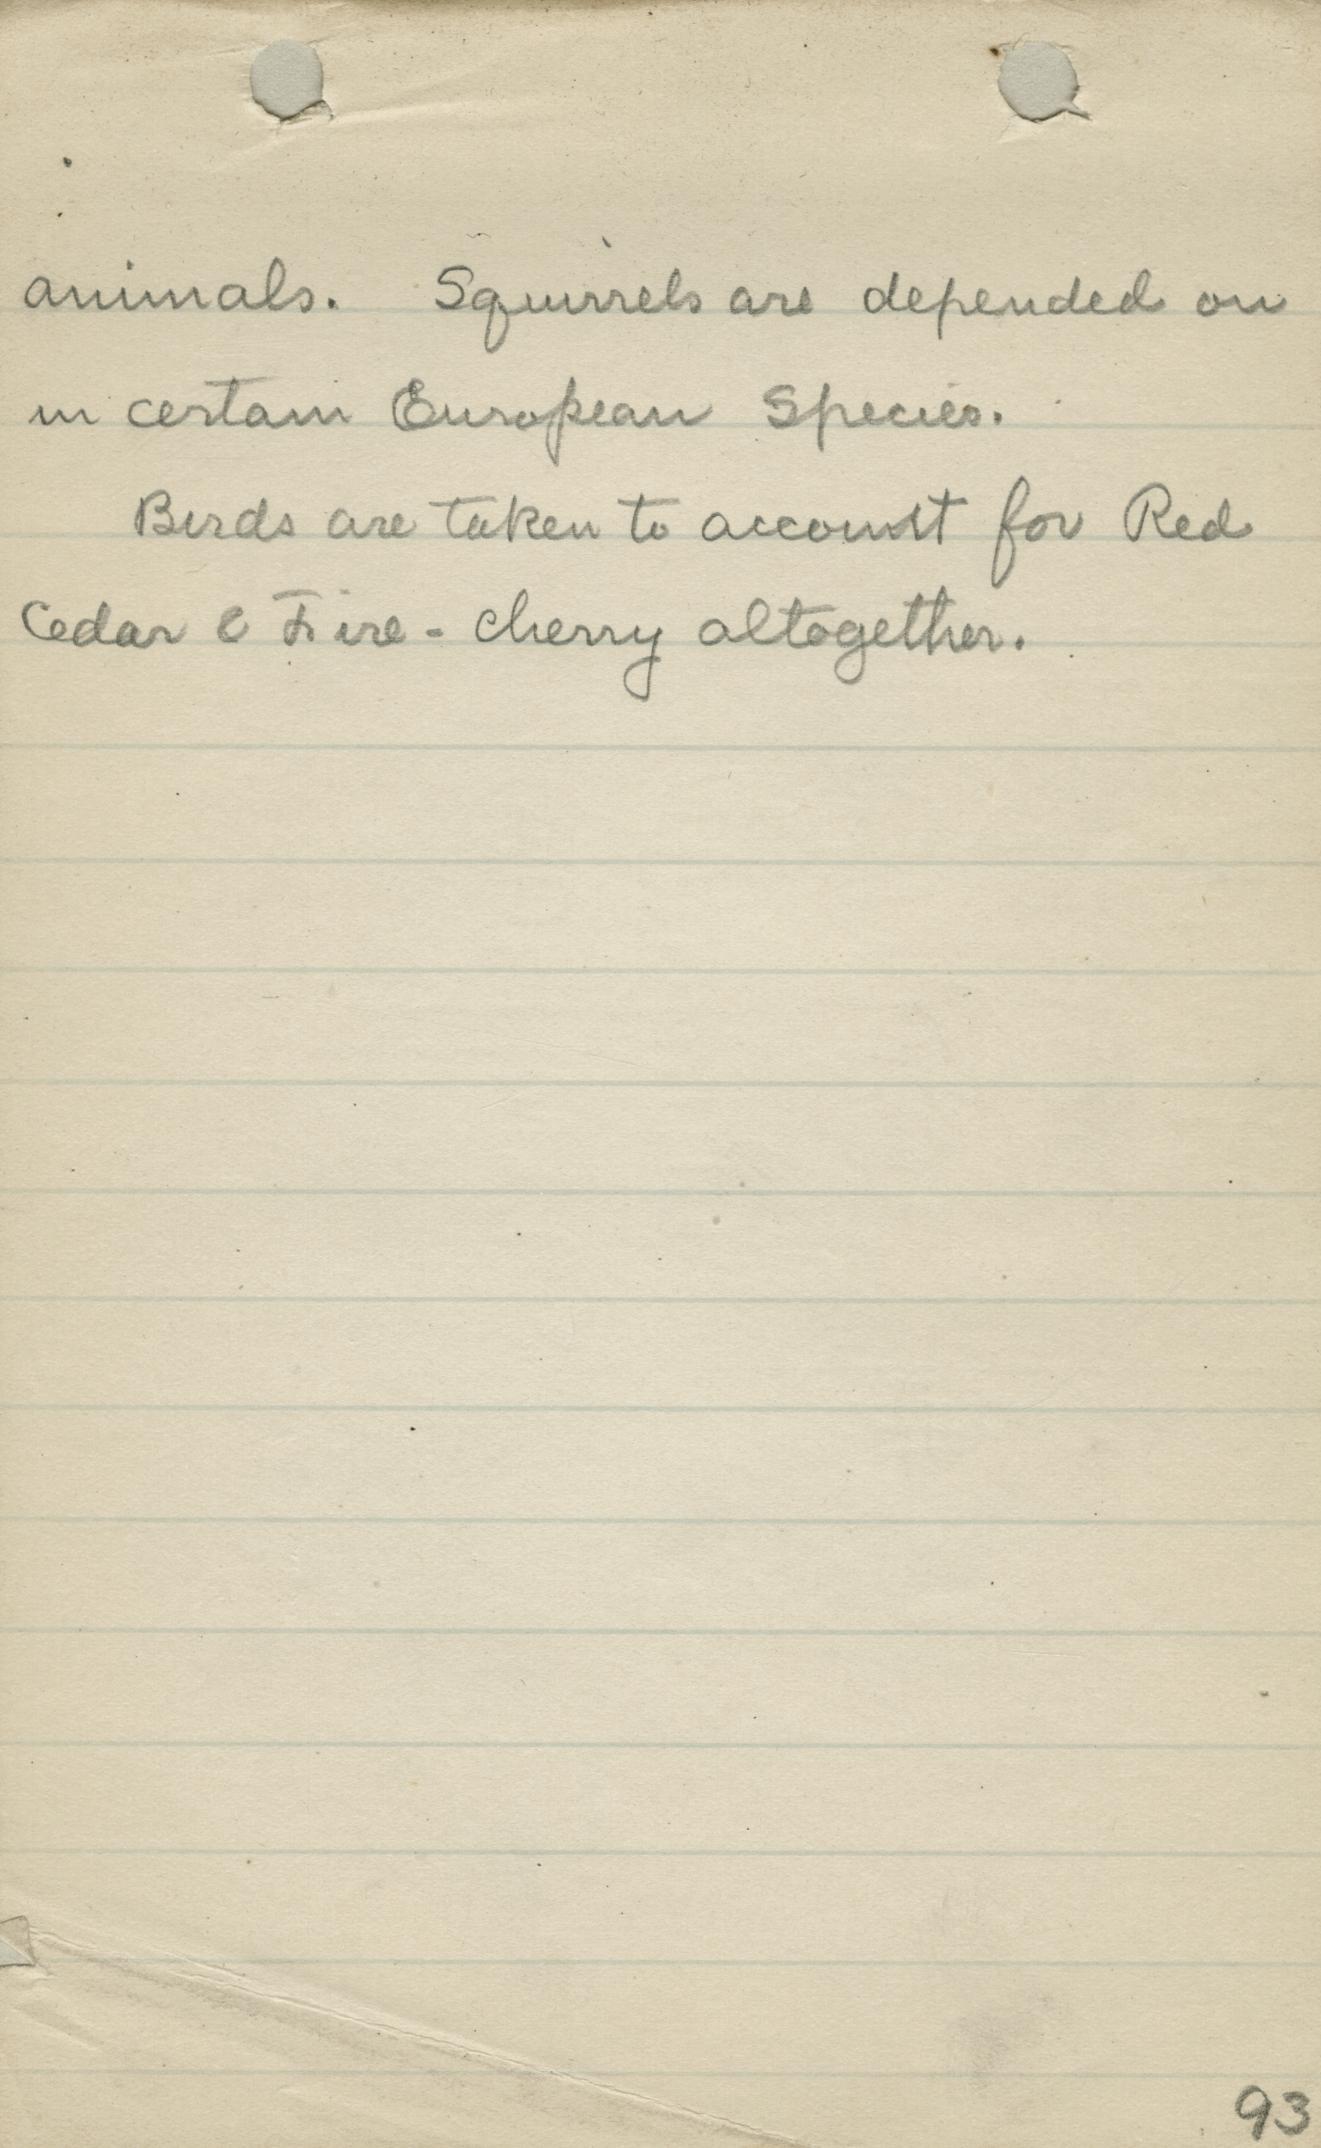 animals. Squirrels are depended on
in certain European Species.
Birds are taken to account for Red
Cedar & Fire-cherry altogether.
93